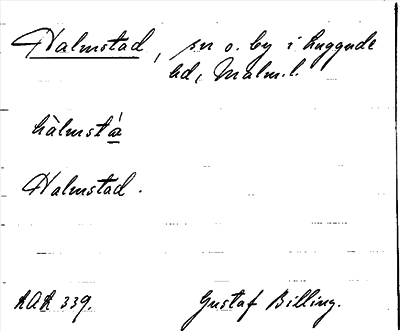 Halmstad, sn o. by i Luggude
hd, Malm. l.
hàlmstá
Halmstad.
RAÄ 339. Gustaf Billing.